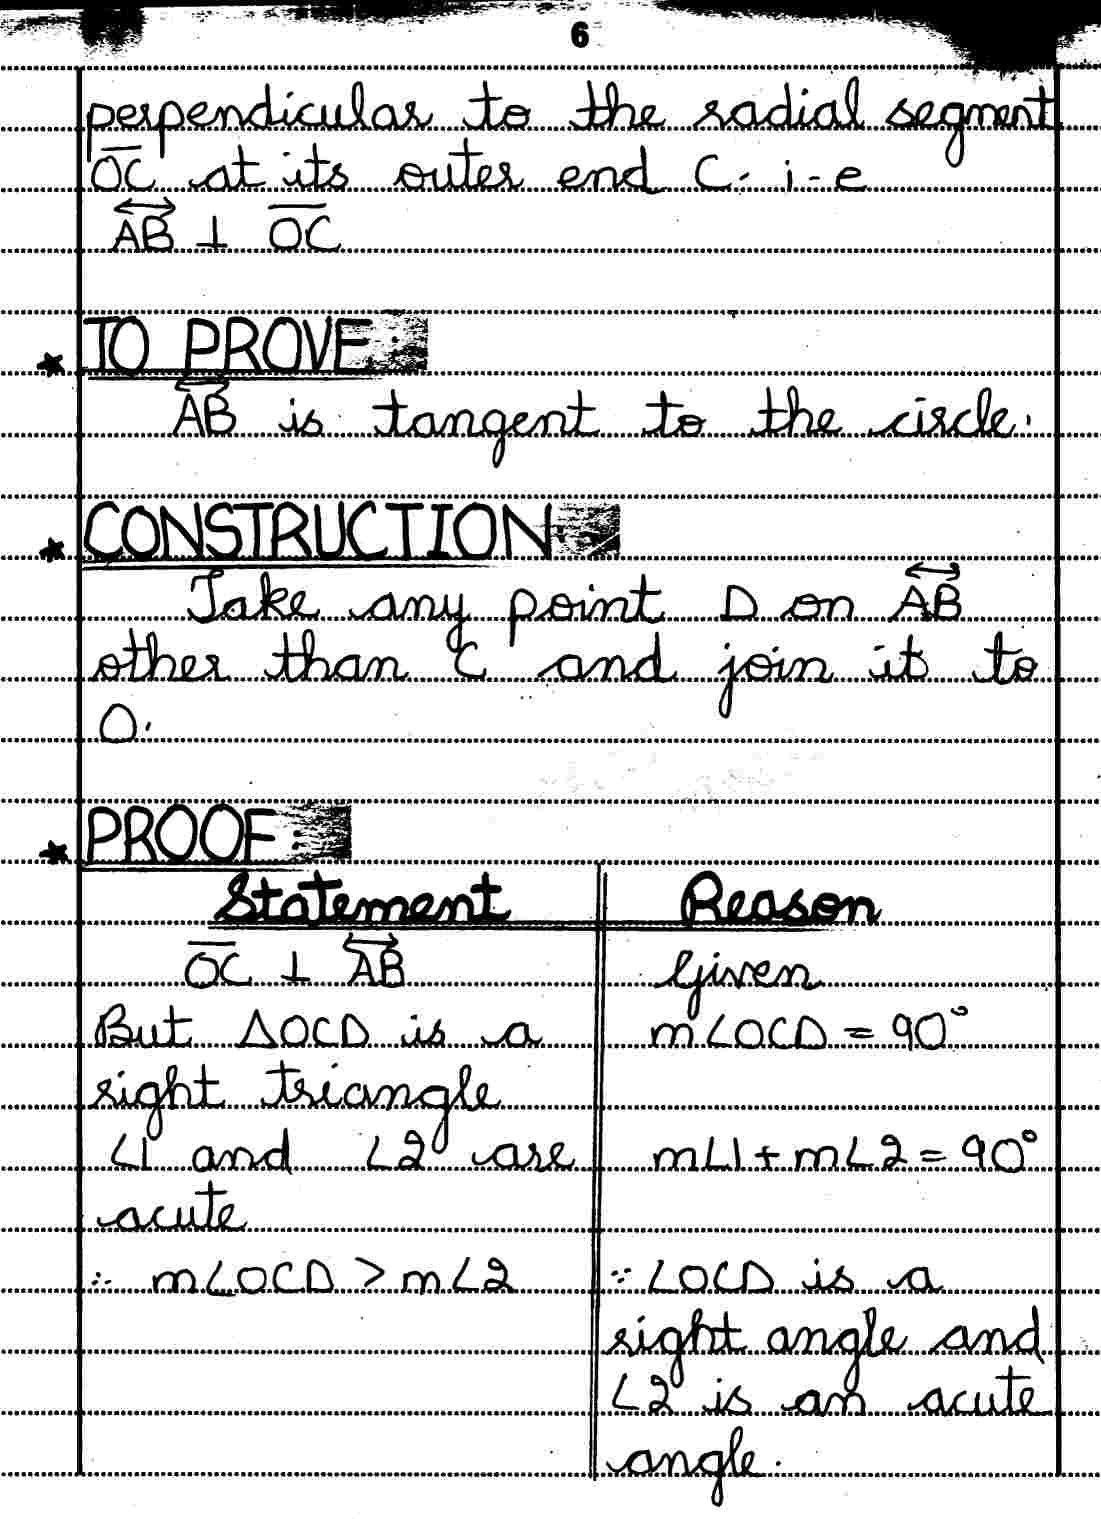 6
perpendicular to the radial segment
O͞C͞ at its outer end C. i-e
A⃡B⃡ ⊥ O͞C͞
* TO PROVE:
A⃡B⃡ is tangent to the circle.
* CONSTRUCTION:
Take any point D on A⃡B⃡
other than C and join it to
O.
* PROOF:
Statement Reason
O͞C͞ ⊥ A⃡B⃡ Given
But △OCD is a m∠OCD = 90°
right triangle
∠1 and ∠2 are m∠1 + m∠2 = 90°
acute
∴ m∠OCD > m∠2 ∵ ∠OCD is a
right angle and
∠2 is an acute
angle.